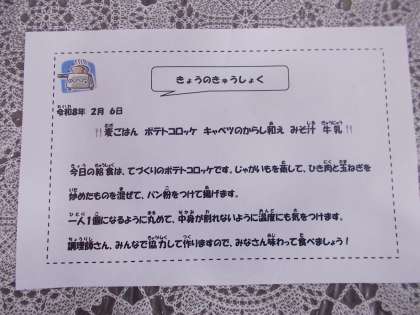 きょうのきゅうしょく
令和8年 2月 6日
!!麦ごはん ポテトコロッケ キャベツのからし和え みそ汁 牛乳!!
今日の給食は、てづくりのポテトコロッケです。じゃがいもを蒸して、ひき肉と玉ねぎを
炒めたものを混ぜて、パン粉をつけて揚げます。
一人1個になるように丸めて、中身が割れないように温度にも気をつけます。
調理師さん、みんなで協力して作りますので、みなさん味わって食べましょう！